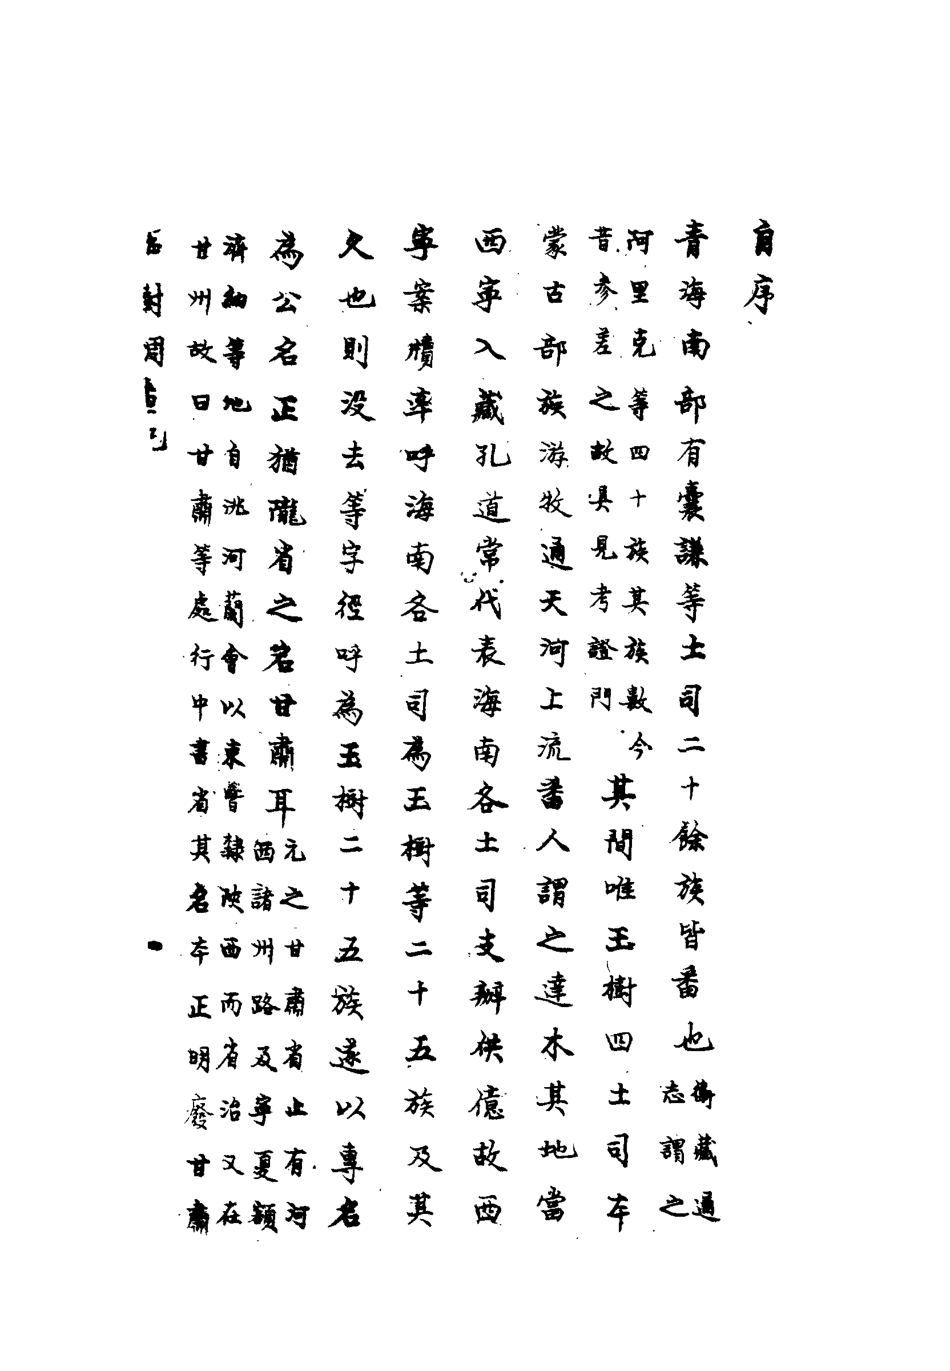 自序
青海南部有囊謙等土司二十餘族皆番也衛藏通
志謂之
阿里克等四十族其族數今
昔參差之故具見考證門
其間唯玉樹四土司本
蒙古部族游牧通天河上流番人謂之達木其地當
西寧入藏孔道常代表海南各土司支辦供億故西
寧案牘率呼海南各土司為玉樹等二十五族及其
久也則没去等字徑呼為玉樹二十五族遂以專名
為公名正猶隴省之名甘肅耳
元之甘肅省止有河
西諸州路及寧夏額
濟納等地自洮河蘭會以東皆隸陝西而省治又在
甘州故曰甘肅等處行中書省其名本正明廢甘肅